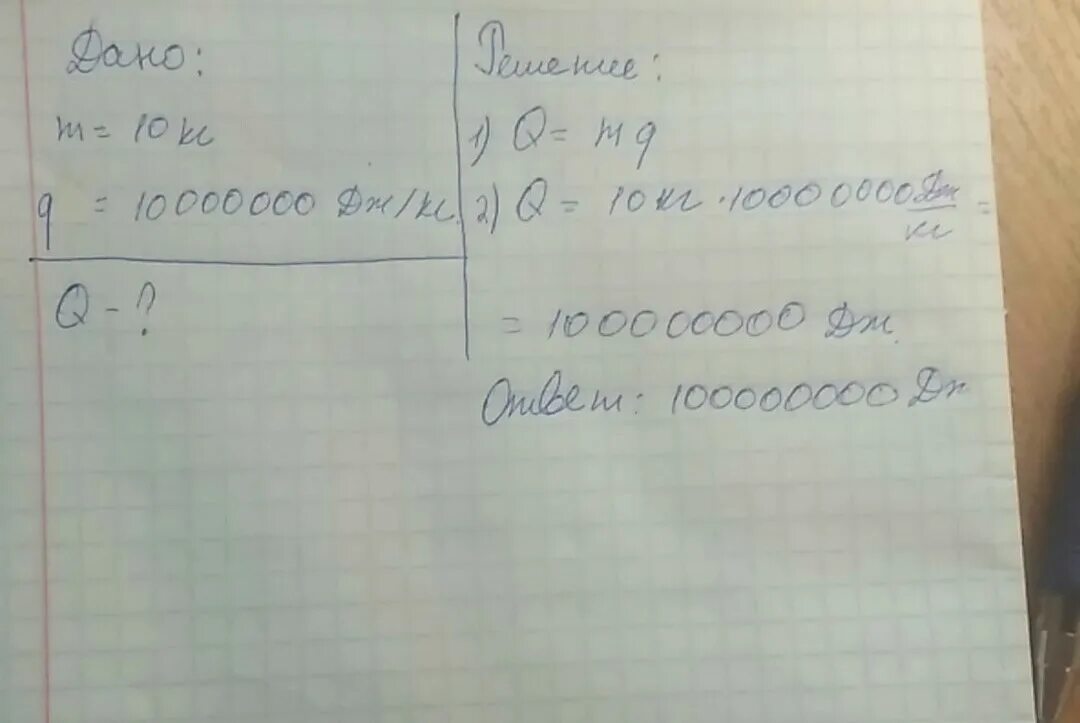 Дано:
m = 10 кг
q = 10000000 Дж/кг
Q - ?
Решение:
1) Q = m q
2) Q = 10 кг · 10000000 Дж/кг =
= 100000000 Дж.
Ответ: 100000000 Дж